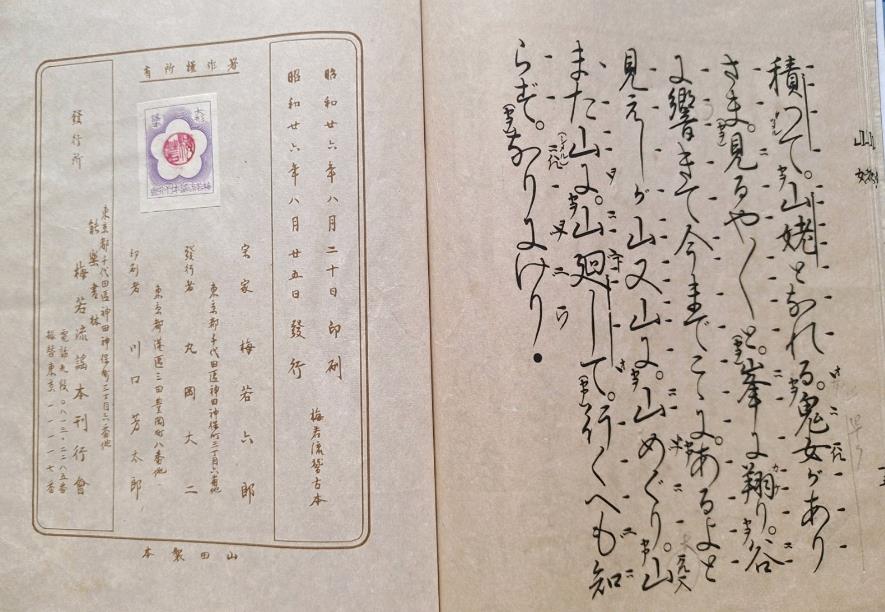 山姥
積つて。山姥となれる。鬼女があり
さま。見るや〱と。峯に翔り。谷
に響きて今までこゝに。あるよと
見えしが山又山に。山めぐり。山
また山に。山廻りして。行くへも知
らず。なりにけり
著作權所有
昭和廿六年八月二十日印刷
昭和廿六年八月廿五日發行
梅若流稽古本
宗家 梅若六郎
東京都千代田區神田神保町三丁目六番地
發行者 丸岡大二
東京都港區三田豊岡町八番地
印刷者 川口芳太郎
東京都千代田區神田神保町三丁目六番地
能樂書林
發行所 梅若流謠本刊行會
山田製本